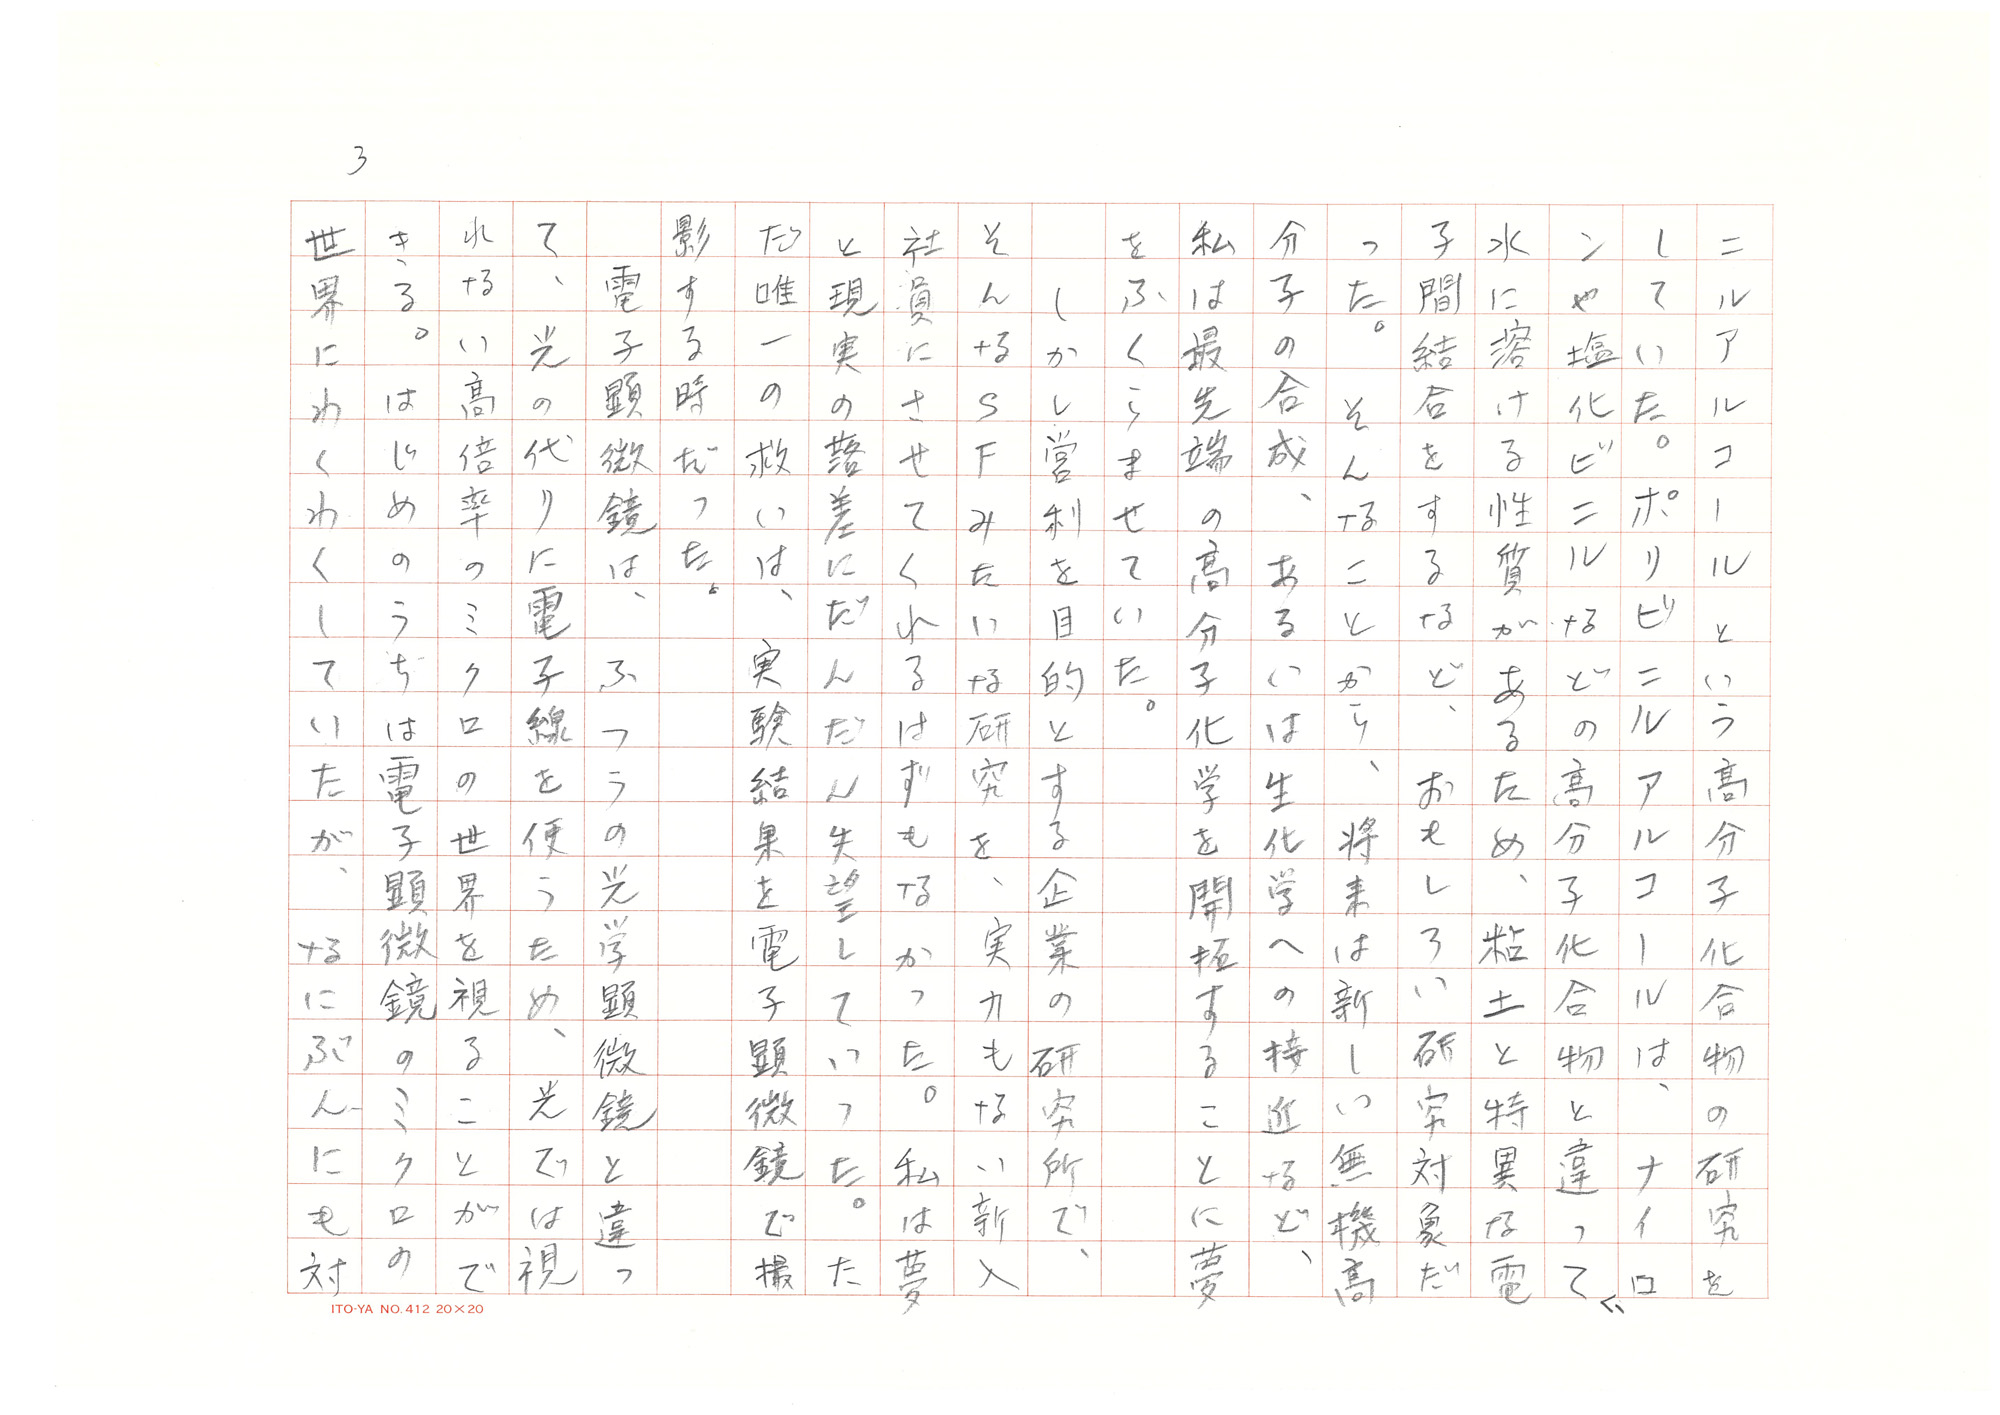 3
ニルアルコールという高分子化合物の研究を
していた。ポリビニルアルコールは、ナイロ
ンや塩化ビニルなどの高分子化合物と違って
水に溶ける性質があるため、粘土と特異な電
子間結合をするなど、おもしろい研究対象だ
った。そんなことから、将来は新しい無機高
分子の合成、あるいは生化学への接近など、
私は最先端の高分子化学を開拓することに夢
をふくらませていた。
しかし営利を目的とする企業の研究所で、
そんなSFみたいな研究を、実力もない新入
社員にさせてくれるはずもなかった。私は夢
と現実の落差にだんだん失望していった。た
だ唯一の救いは、実験結果を電子顕微鏡で撮
影する時だった。
電子顕微鏡は、ふつうの光学顕微鏡と違っ
て、光の代りに電子線を使うため、光では視
れない高倍率のミクロの世界を視ることがで
きる。はじめのうちは電子顕微鏡のミクロの
世界にわくわくしていたが、なにぶんにも対
ITO-YA NO.412 20×20